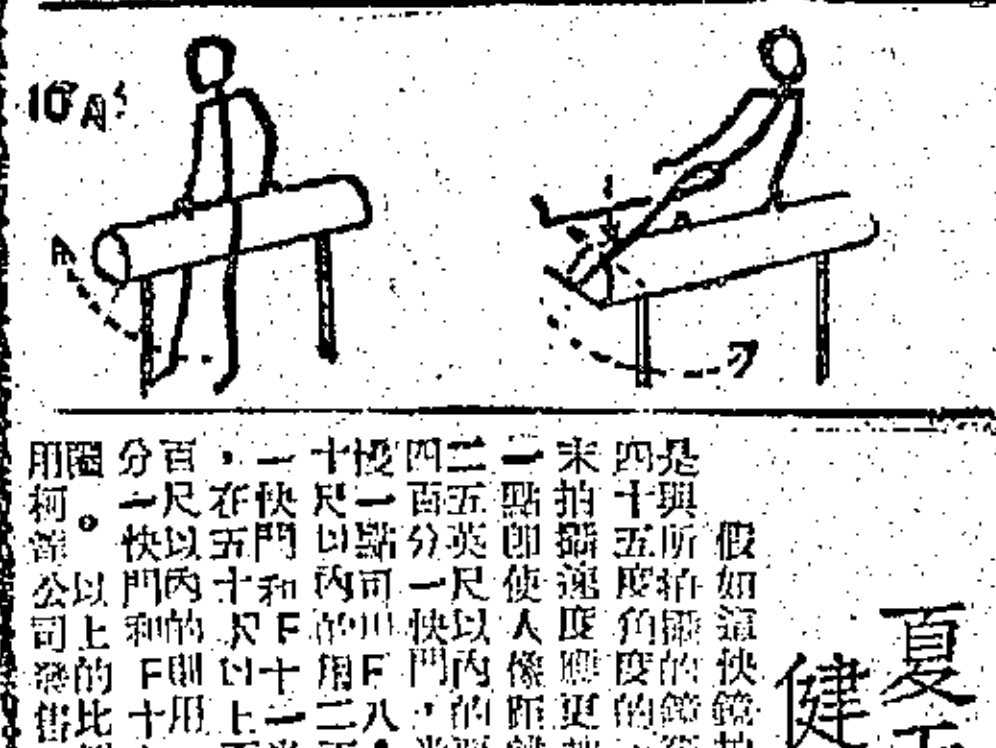 10A
A
A
夏
健
假如這快鏡
是與所拍攝的鏡
四十五度角度的
末拍攝速度應更
一點即使人像距
二五英尺以內的
四百分一快門，
慢一點可用F八
十尺以內的用二
一快門和F十一
，在五十尺以上
百尺以內的則用
分一快門和F十
圈。以上的比
用柯達公司發售